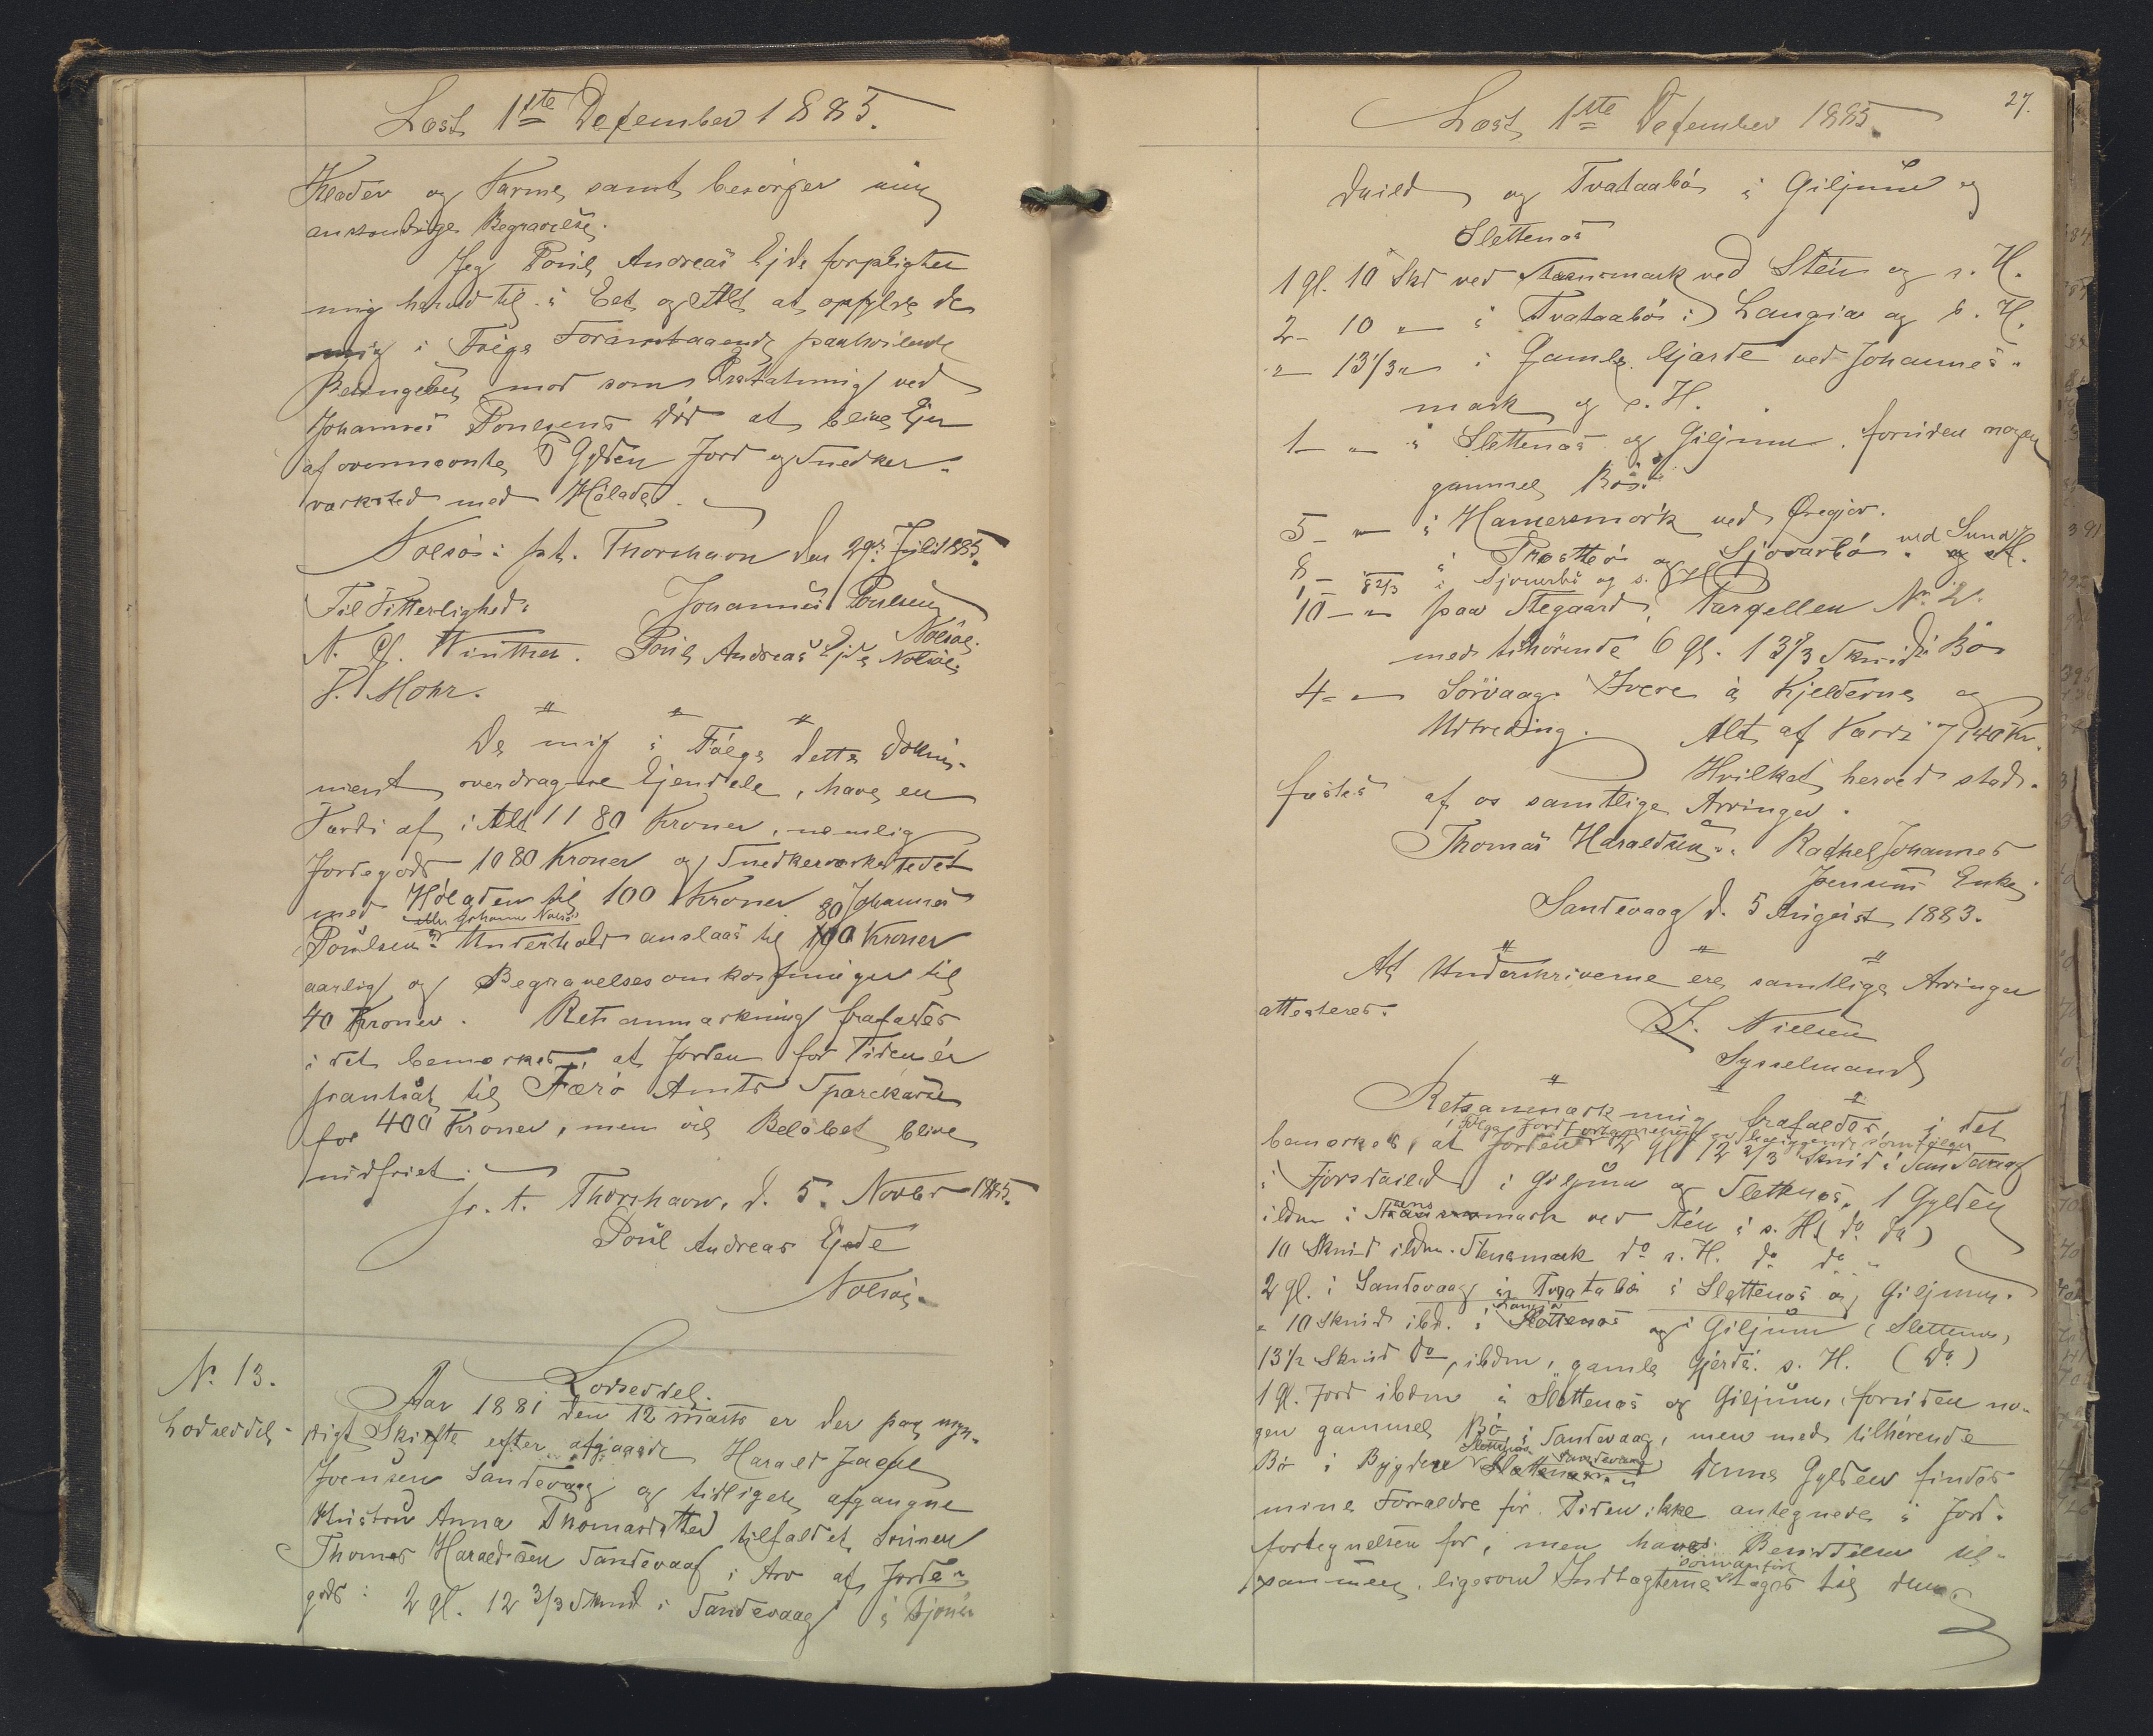 Læst 1ste December 1885.
Klæder og Varme, samt besørger min
anstændige Begravelse.
Jeg Poul Andreas Ejde forpligter
mig herved til i Eet og Alt at opfylde de
mig i Følge Foranstaaende paahvilende
Betingelser, mod som Erstatning ved
Johannes Poulsens Død at blive Ejer
af ovennævnte 6 Gylden Jord og Snedker-
værksted med Hølade.
Nolsø: p.t. Thorshavn den 29de Juli 1885.
Til Vitterlighed: Johannes Poulsen
Nolsø.
N. C. Winther. Poul Andreas Ejde Nolsø.
J. Mohr.
" " "
De mig i Følge dette Doku-
ment overdragne Ejendele, have en
Værdi af i Alt 1180 Kroner, nemlig
Jordegods 1080 Kroner og Snedkerværkstedet
med Høladen til 100 Kroner. Johannes
eller Johanne Nolsø 80
Poulsens Underhold anslaas til 100 Kroner
aarlig og Begravelsesomkostninger til
40 Kroner. Retsanmærkning frafaldes
i det bemærkes, at Jorden for Tiden er
pantsat til Færø Amts Sparekasse
for 400 Kroner, men vil Beløbet blive
indfriet.
p. t. Thorshavn, d. 5. Novbr 1885.
Poul Andreas Ejde
Nolsø.
N. 13.
Lodseddel.
Lodseddel.
Aar 1881 den 12 Marts er der paa myn-
digt Skifte efter afgaaede Harald Jacob
Joensen Sandevaag og tidligere afgangne
Hustru Anna Thomasdatter tilfaldet Sønnen
Thomas Haraldsen Sandevaag i Arv af Jorde-
gods: 2 gl. 12 2/3 Skind i Sandevaag i Fjors-
27.
Læst 1ste December 1885.
daild og Tvataabø i Giljum og
Slettenæs
1 gl. 10 Skd ved Stensmark ved Stein og s. H.
2 - 10 " i Tvataabø i Langia og s. H.
" - 13 1/3 " i Gamle Gjærde ved Johannes-
mark og s. H.
1 - " i Slettenæs og Giljum, foruden nogen
gammel Bø.
5 - " i Hamersmørk ved Øregjov.
8 - i Præstbø og Sjovarbø ved Sund
1 - 8 2/3 i Sjovarbø og s. H.
10 - " paa Stegaard, Parzellen No 2.
med tilhørende 6 gl. 13 1/3 Skind i Bø
4 - " Sørvaag. Hvere i Kjelderne og
Udtreding. Alt af Værdi 7140 Kr.
Hvilket herved stad-
fæstes af os samtlige Arvinger.
Thomas Haraldsen. Rachel Johannes
Joensens Enke.
Sandevaag d. 5 August 1883.
" " "
At Underskriverne ere samtlige Arvinger
attesteres.
J. Nielsen
Sysselmand
" " "
Retsanmærkning frafaldes, i det
bemærkes, at Jorden
2 gl. 12 2/3 Skind i Sandevaag
i Fjorsdaild i Giljum og Slettenæs, 1 Gylden
ibdm i Stensmark ved Stein i s. H. (do do)
10 Skind ibdm. Stensmark do s. H. do do
2 gl. i Sandevaag i Tvatabø i Slettenæs og Giljum.
" 10 Skind ibd. i Langia og i Giljum (Slettenæs)
13 1/2 Skind do, ibdm, gamle Gjerde. s. H. (do)
1 gl. Jord ibdm i Slettenæs og Giljum, foruden no-
gen gammel Bø i Sandevaag, men med tilhørende
Bø i Bygden Slettenæs Sandevaag Denne Gylden findes
mine Forældre for Tiden ikke antegnede i Jord-
fortegnelsen for, men have Besiddelsen til-
sammen, ligesom Indtægterne tages til denne